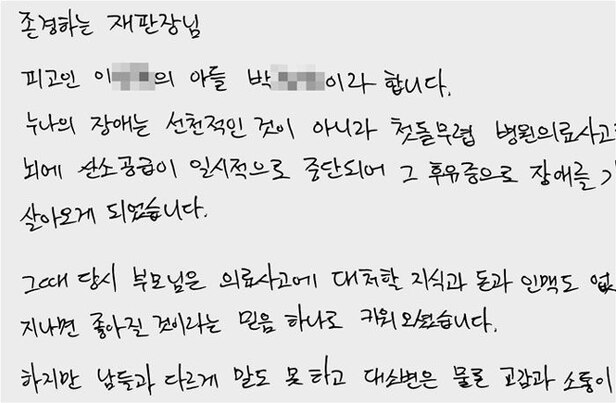 존경하는 재판장님
피고인 이 의 아들 박 이라 합니다.
누나의 장애는 선천적인 것이 아니라 첫돌무렵 병원의료사고
뇌에 산소공급이 일시적으로 중단되어 그 후유증으로 장애를
살아오게 되었습니다.
그때 당시 부모님은 의료사고에 대처할 지식과 돈과 인맥도
지나면 좋아질 것이라는 믿음 하나로 키워오셨습니다.
하지만 남들과 다르게 말도 못 하고 대소변은 물론 교감과 소통이